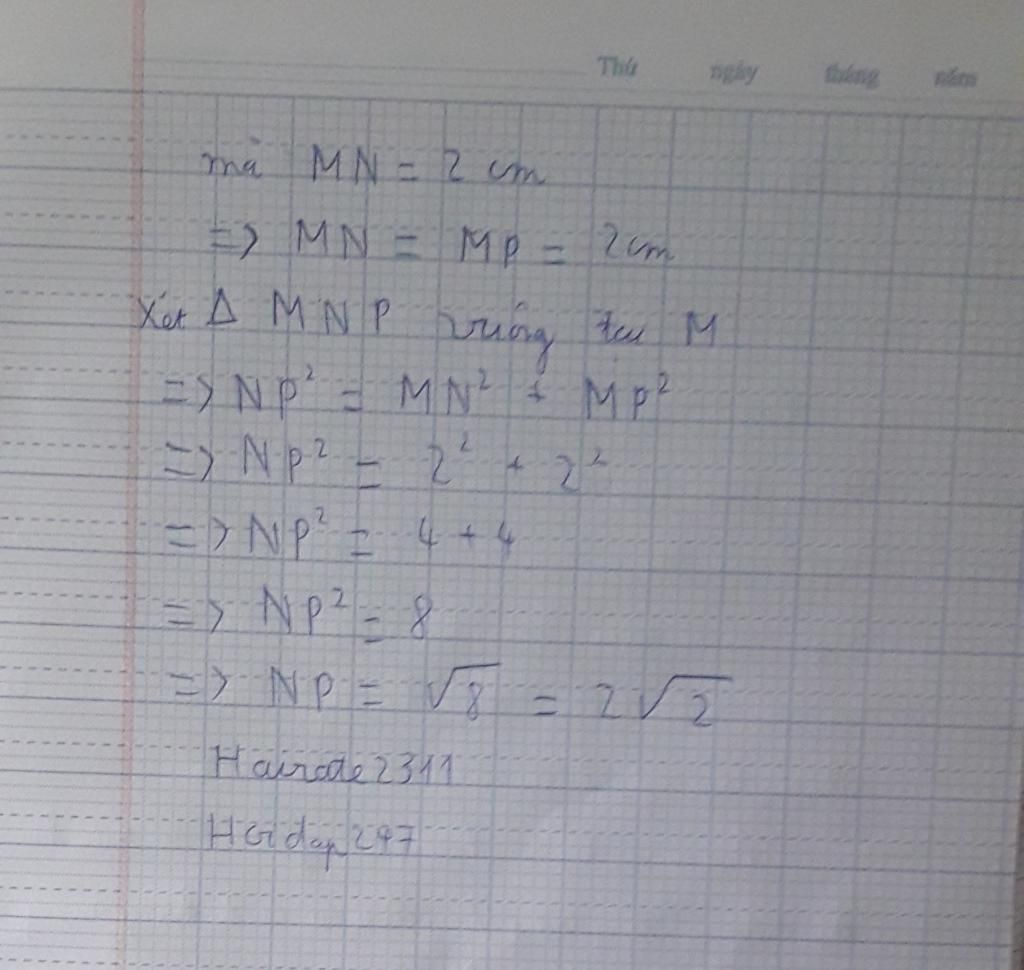 Thứ ngày tháng năm
mà MN = 2 cm
=> MN = MP = 2cm
Xét Δ MNP vuông tại M
=> NP² = MN² + MP²
=> NP² = 2² + 2²
=> NP² = 4 + 4
=> NP² = 8
=> NP = √8 = 2√2
Hoidap247